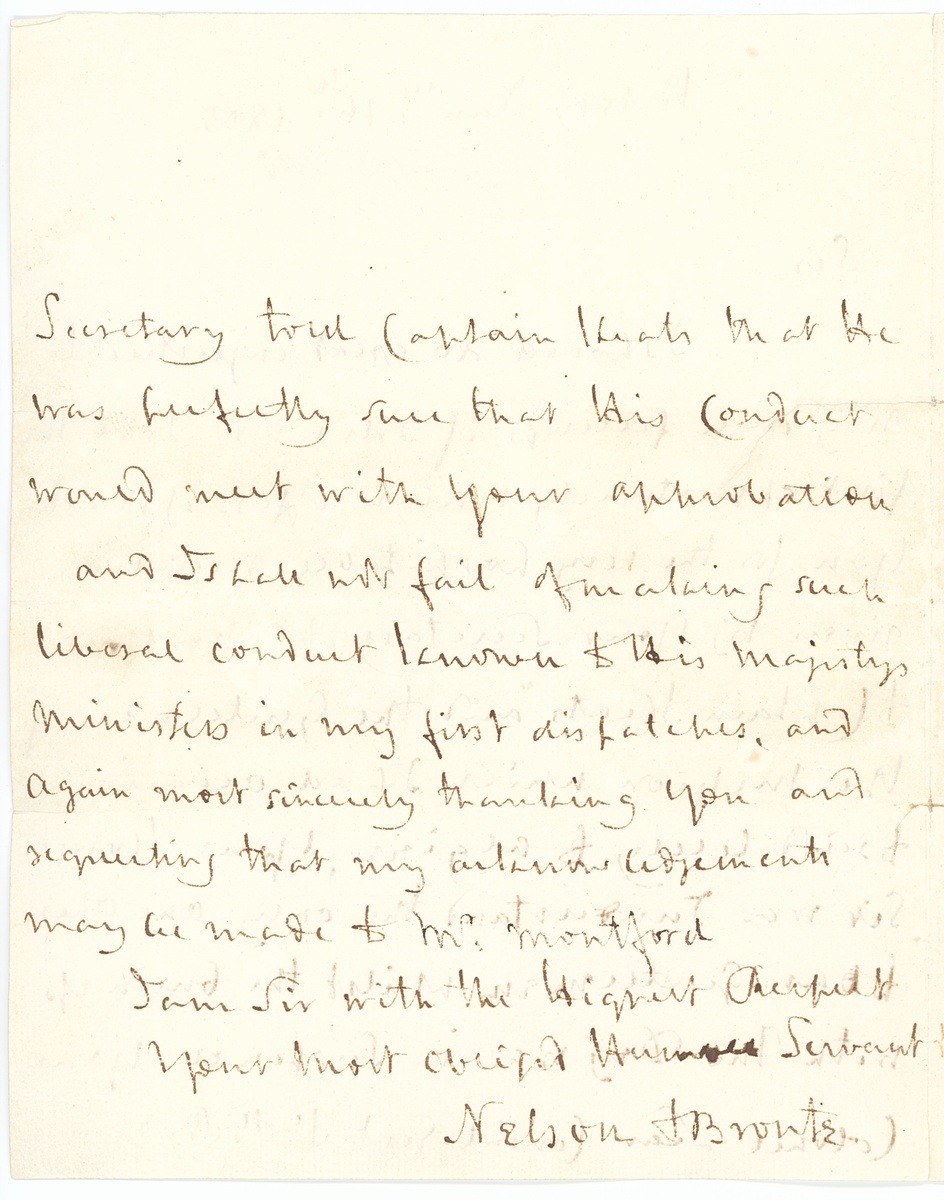 Secretary told Captain Keats that He
was perfectly sure that His Conduct
would meet with your approbation
and I shall not fail of making such
liberal conduct known to His Majestys
Ministers in my first dispatches, and
again most sincerely thanking you and
requesting that my acknowledgements
may be made to Mr. Montford
I am Sir with the Highest Respect
your most obliged Humble Servant
Nelson & Bronte